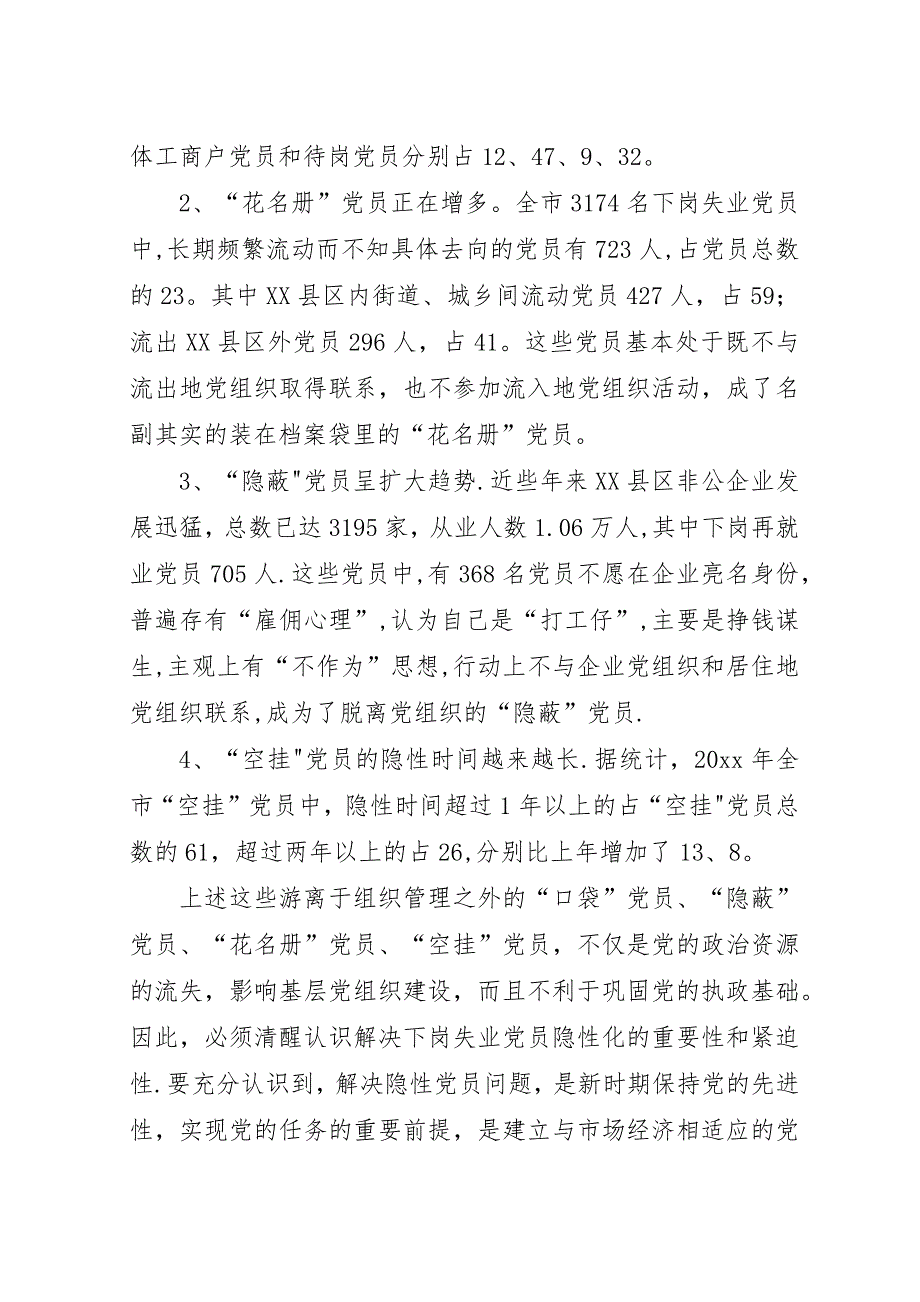 体工商户党员和待岗党员分别占 12、47、9、32。
2、“花名册”党员正在增多。全市 3174 名下岗失业党员
中,长期频繁流动而不知具体去向的党员有 723 人,占党员总数
的 23。其中 XX 县区内街道、城乡间流动党员 427 人，占 59；
流出 XX 县区外党员 296 人，占 41。这些党员基本处于既不与
流出地党组织取得联系，也不参加流入地党组织活动，成了名
副其实的装在档案袋里的“花名册”党员。
3、“隐蔽"党员呈扩大趋势.近些年来 XX 县区非公企业发
展迅猛，总数已达 3195 家，从业人数 1.06 万人,其中下岗再就
业党员 705 人.这些党员中,有 368 名党员不愿在企业亮名身份，
普遍存有“雇佣心理”,认为自己是“打工仔”,主要是挣钱谋
生,主观上有“不作为”思想,行动上不与企业党组织和居住地
党组织联系,成为了脱离党组织的“隐蔽”党员.
4、“空挂"党员的隐性时间越来越长.据统计，20xx 年全
市“空挂”党员中，隐性时间超过 1 年以上的占“空挂"党员总
数的 61，超过两年以上的占 26,分别比上年增加了 13、8。
上述这些游离于组织管理之外的“口袋”党员、“隐蔽”
党员、“花名册”党员、“空挂”党员，不仅是党的政治资源
的流失，影响基层党组织建设，而且不利于巩固党的执政基础。
因此，必须清醒认识解决下岗失业党员隐性化的重要性和紧迫
性.要充分认识到，解决隐性党员问题，是新时期保持党的先进
性，实现党的任务的重要前提，是建立与市场经济相适应的党